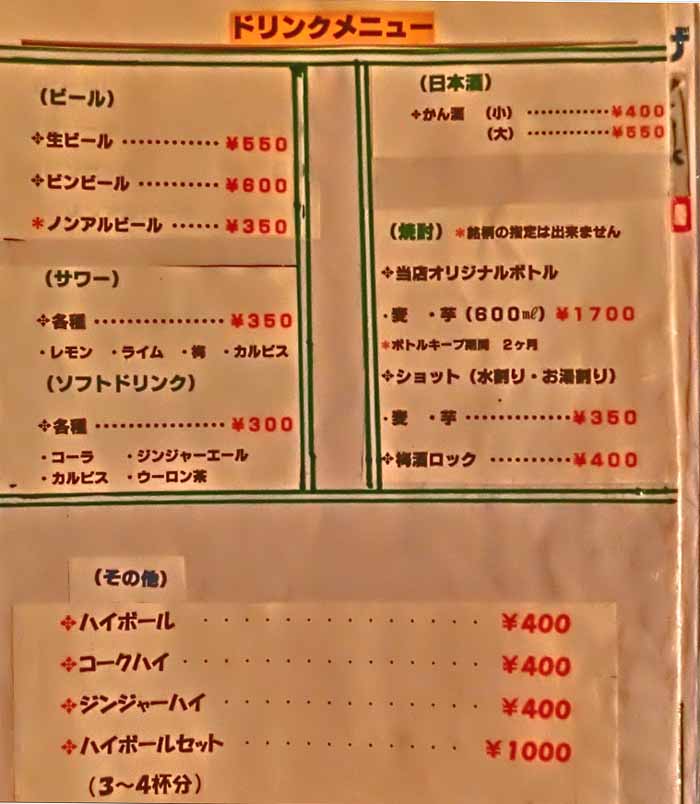 ドリンクメニュー
(ビール)
✣生ビール ・・・・・・・・・・・・ ¥550
✣ビンビール ・・・・・・・・・・ ¥600
*ノンアルビール ・・・・・・ ¥350
(サワー)
✣各種 ・・・・・・・・・・・・・・・・ ¥350
・レモン ・ライム ・梅 ・カルピス
(ソフトドリンク)
✣各種 ・・・・・・・・・・・・・・・・ ¥300
・コーラ ・ジンジャーエール
・カルピス ・ウーロン茶
(日本酒)
✣かん酒 (小) ・・・・・・・・・・・・¥400
(大) ・・・・・・・・・・・・¥550
(焼酎) *銘柄の指定は出来ません
✣当店オリジナルボトル
・麦 ・芋(600㎖) ¥1700
*ボトルキープ期間 2ヶ月
✣ショット(水割り・お湯割り)
・麦 ・芋・・・・・・・・・・・・・・¥350
✣梅酒ロック ・・・・・・・・・・¥400
(その他)
✣ハイボール ・・・・・・・・・・・・・・ ¥400
✣コークハイ ・・・・・・・・・・・・・・ ¥400
✣ジンジャーハイ ・・・・・・・・・・・・・ ¥400
✣ハイボールセット ・・・・・・・・・・・ ¥1000
(3〜4杯分)